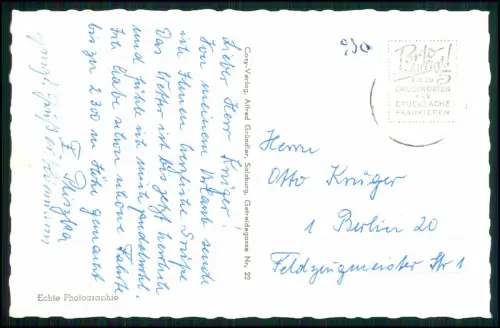 Lieber Herr Krüger!
Von meinem Urlaub sende
ich Ihnen herzliche Grüße
Das Wetter ist bis jetzt herrlich
und fühle ich mich pudelwohl.
Ich habe schon schöne Fahrten
bis zu 2300 m Höhe gemacht
Cosy-Verlag, Alfred Gründler, Salzburg, Getreidegasse Nr. 22
Echte Photographie
930
Porto
BIS ZU
GRUSSWORTEN
DRUCKSACHE
FRANKIEREN
Herrn
Otto Krüger
1 Berlin 20
Feldzeugmeister Str 1